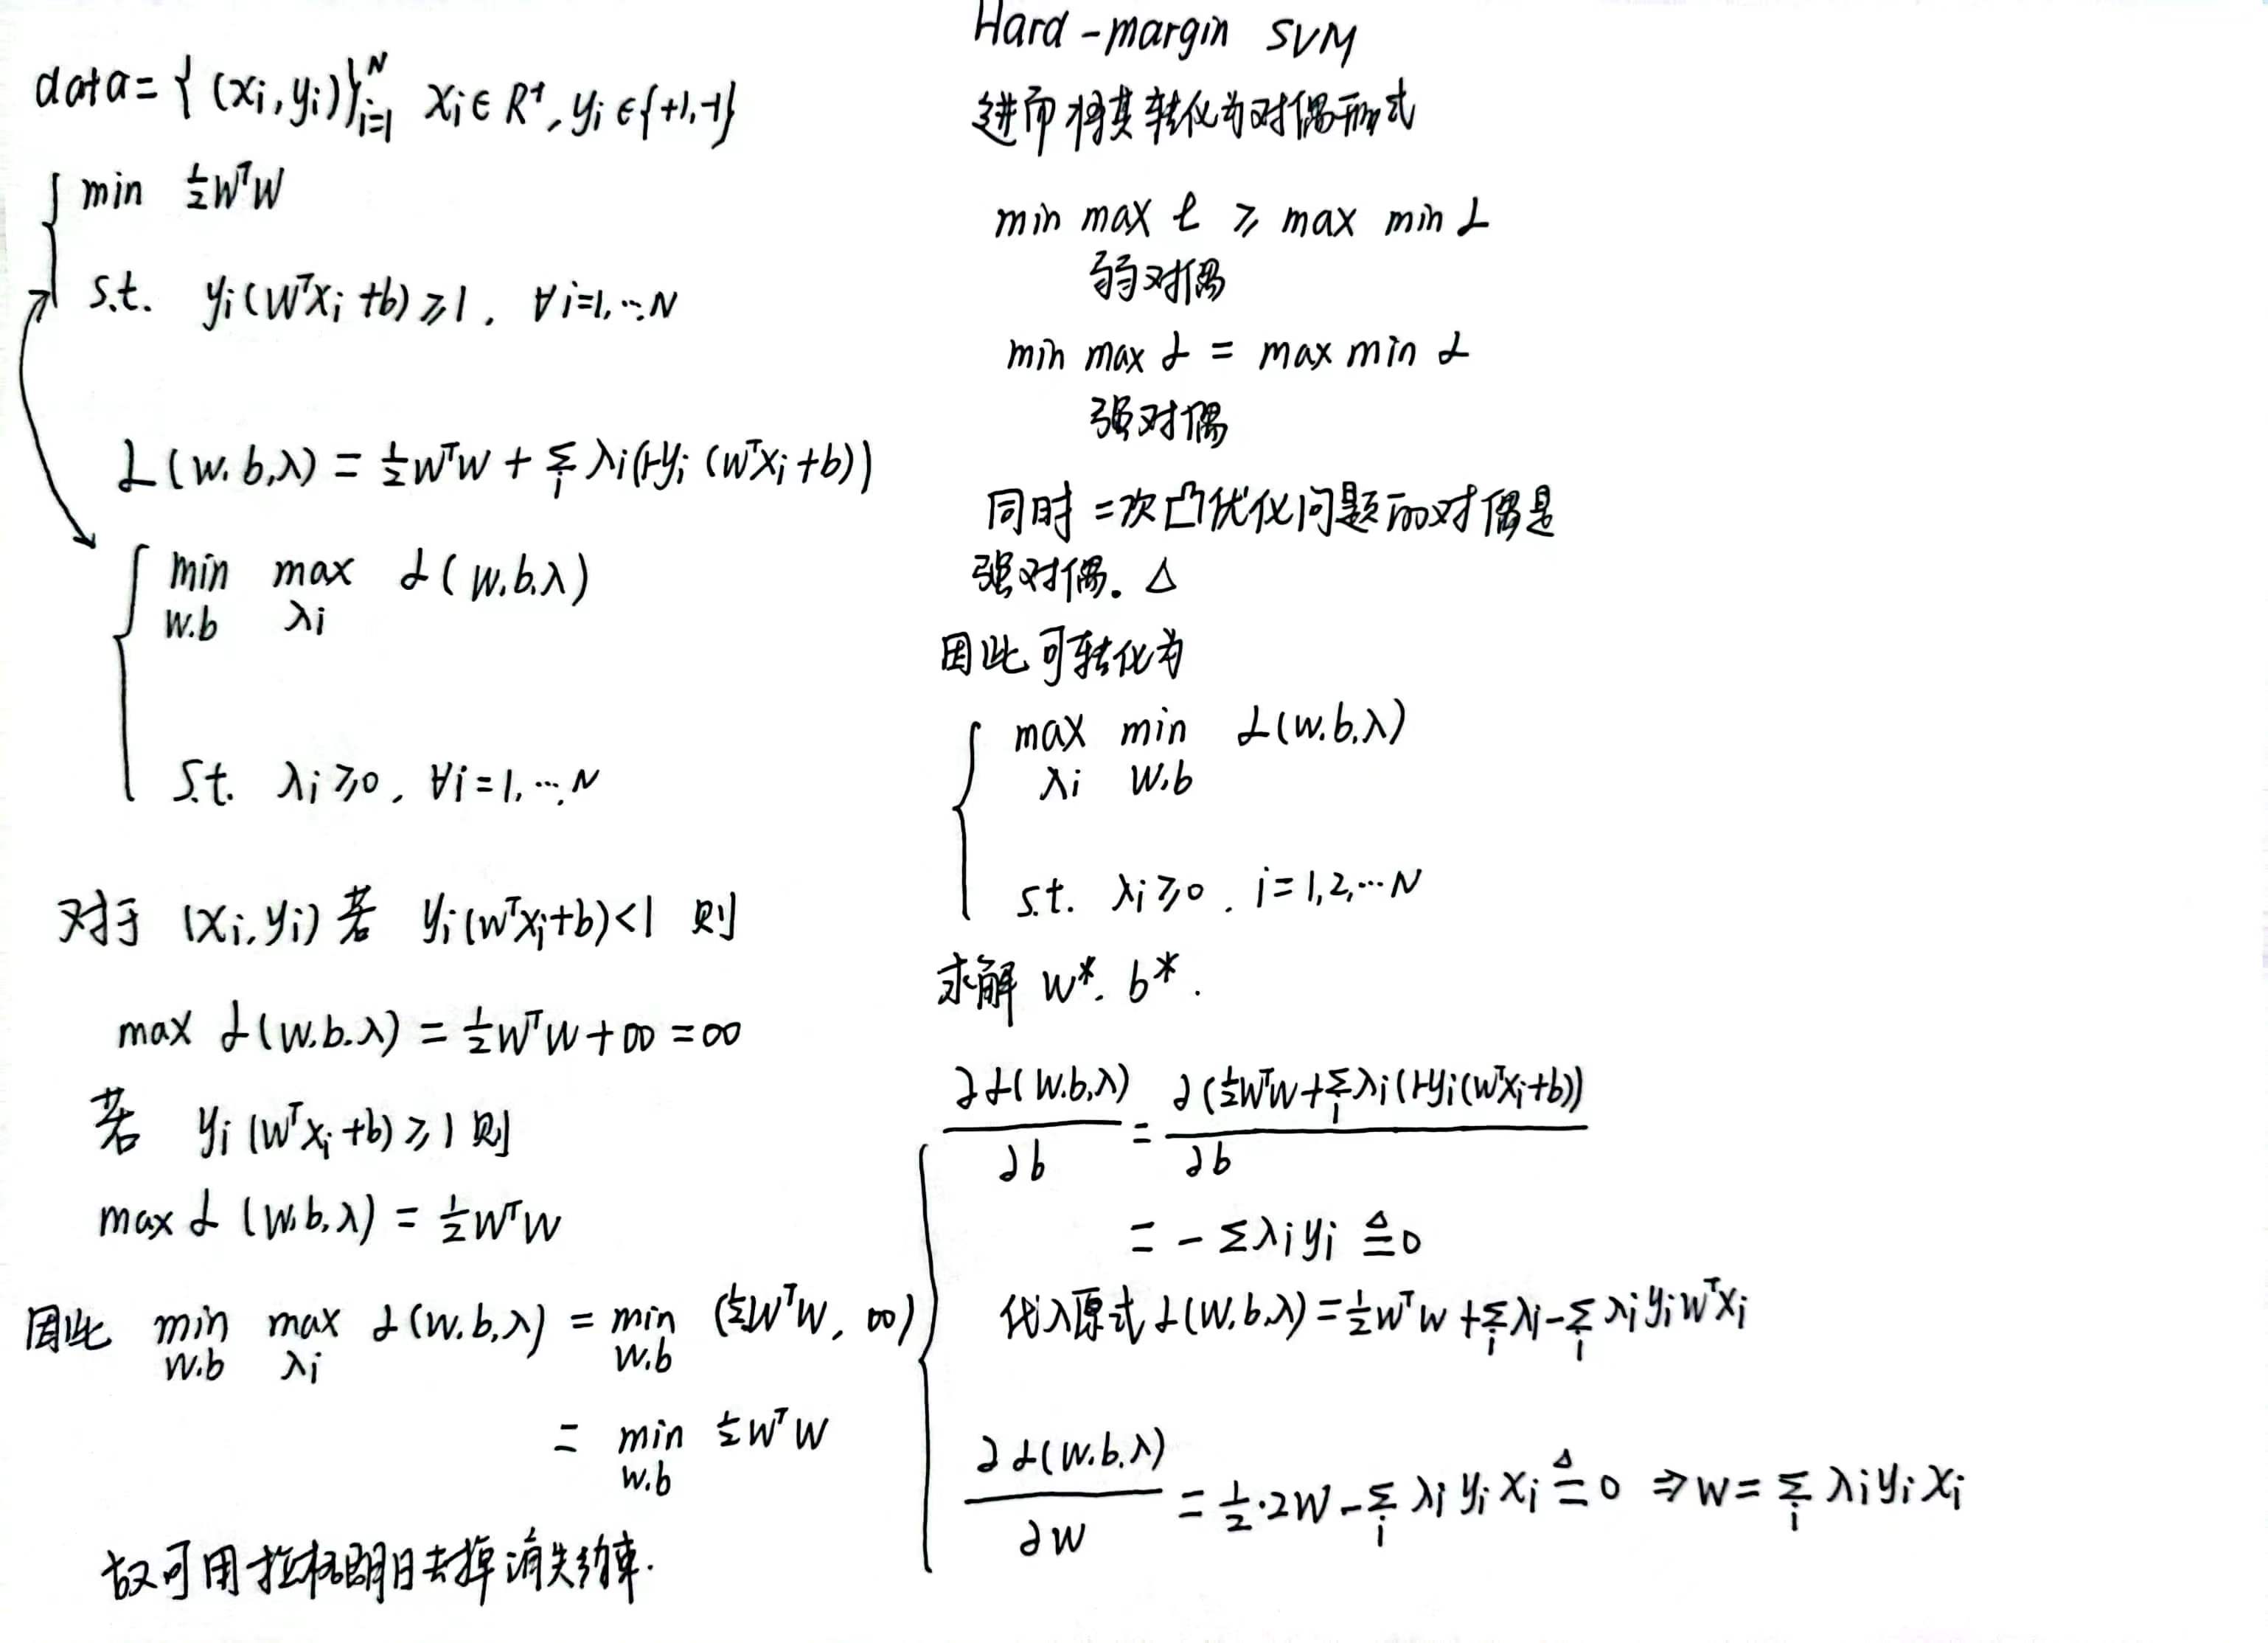 data = { (xi, yi) }ᴺᵢ₌₁ xi ∈ R⁺, yi ∈ {+1, -1}
min ½WᵀW
s.t. yi(Wᵀxi +b) ≥ 1, ∀i=1,…N
L(w, b, λ) = ½WᵀW + Σᵢ λi(1-yi (Wᵀxi +b))
min max L(w,b,λ)
w.b λi
s.t. λi ≥ 0, ∀i=1,…,N
对于 (xi, yi) 若 yi(wᵀxi+b)<1 则
max L(w,b,λ) = ½WᵀW + ∞ = ∞
若 yi (Wᵀxi +b) ≥ 1 则
max L (w,b,λ) = ½WᵀW
因此 min max L(w,b,λ) = min (½WᵀW, ∞)
w.b λi w.b
= min ½WᵀW
w.b
故可用拉格朗日去掉消失约束.
Hard-margin SVM
进而将其转化为对偶形式
min max L ≥ max min L
弱对偶
min max L = max min L
强对偶
同时二次凸优化问题的对偶是
强对偶. △
因此可转化为
max min L(w,b,λ)
λi w,b
s.t. λi ≥ 0, i=1,2,…N
求解 w*, b*.
∂L(w,b,λ)/∂b = ∂(½WᵀW+Σᵢλi(1-yi(Wᵀxi+b))/∂b
= - Σλiyi ≜ 0
代入原式 L(w,b,λ) = ½WᵀW + Σᵢλi - Σᵢ λiyiWᵀxi
∂L(w,b,λ)/∂w = ½·2W - Σᵢ λi yi xi ≜ 0 ⇒ W = Σᵢ λiyi xi